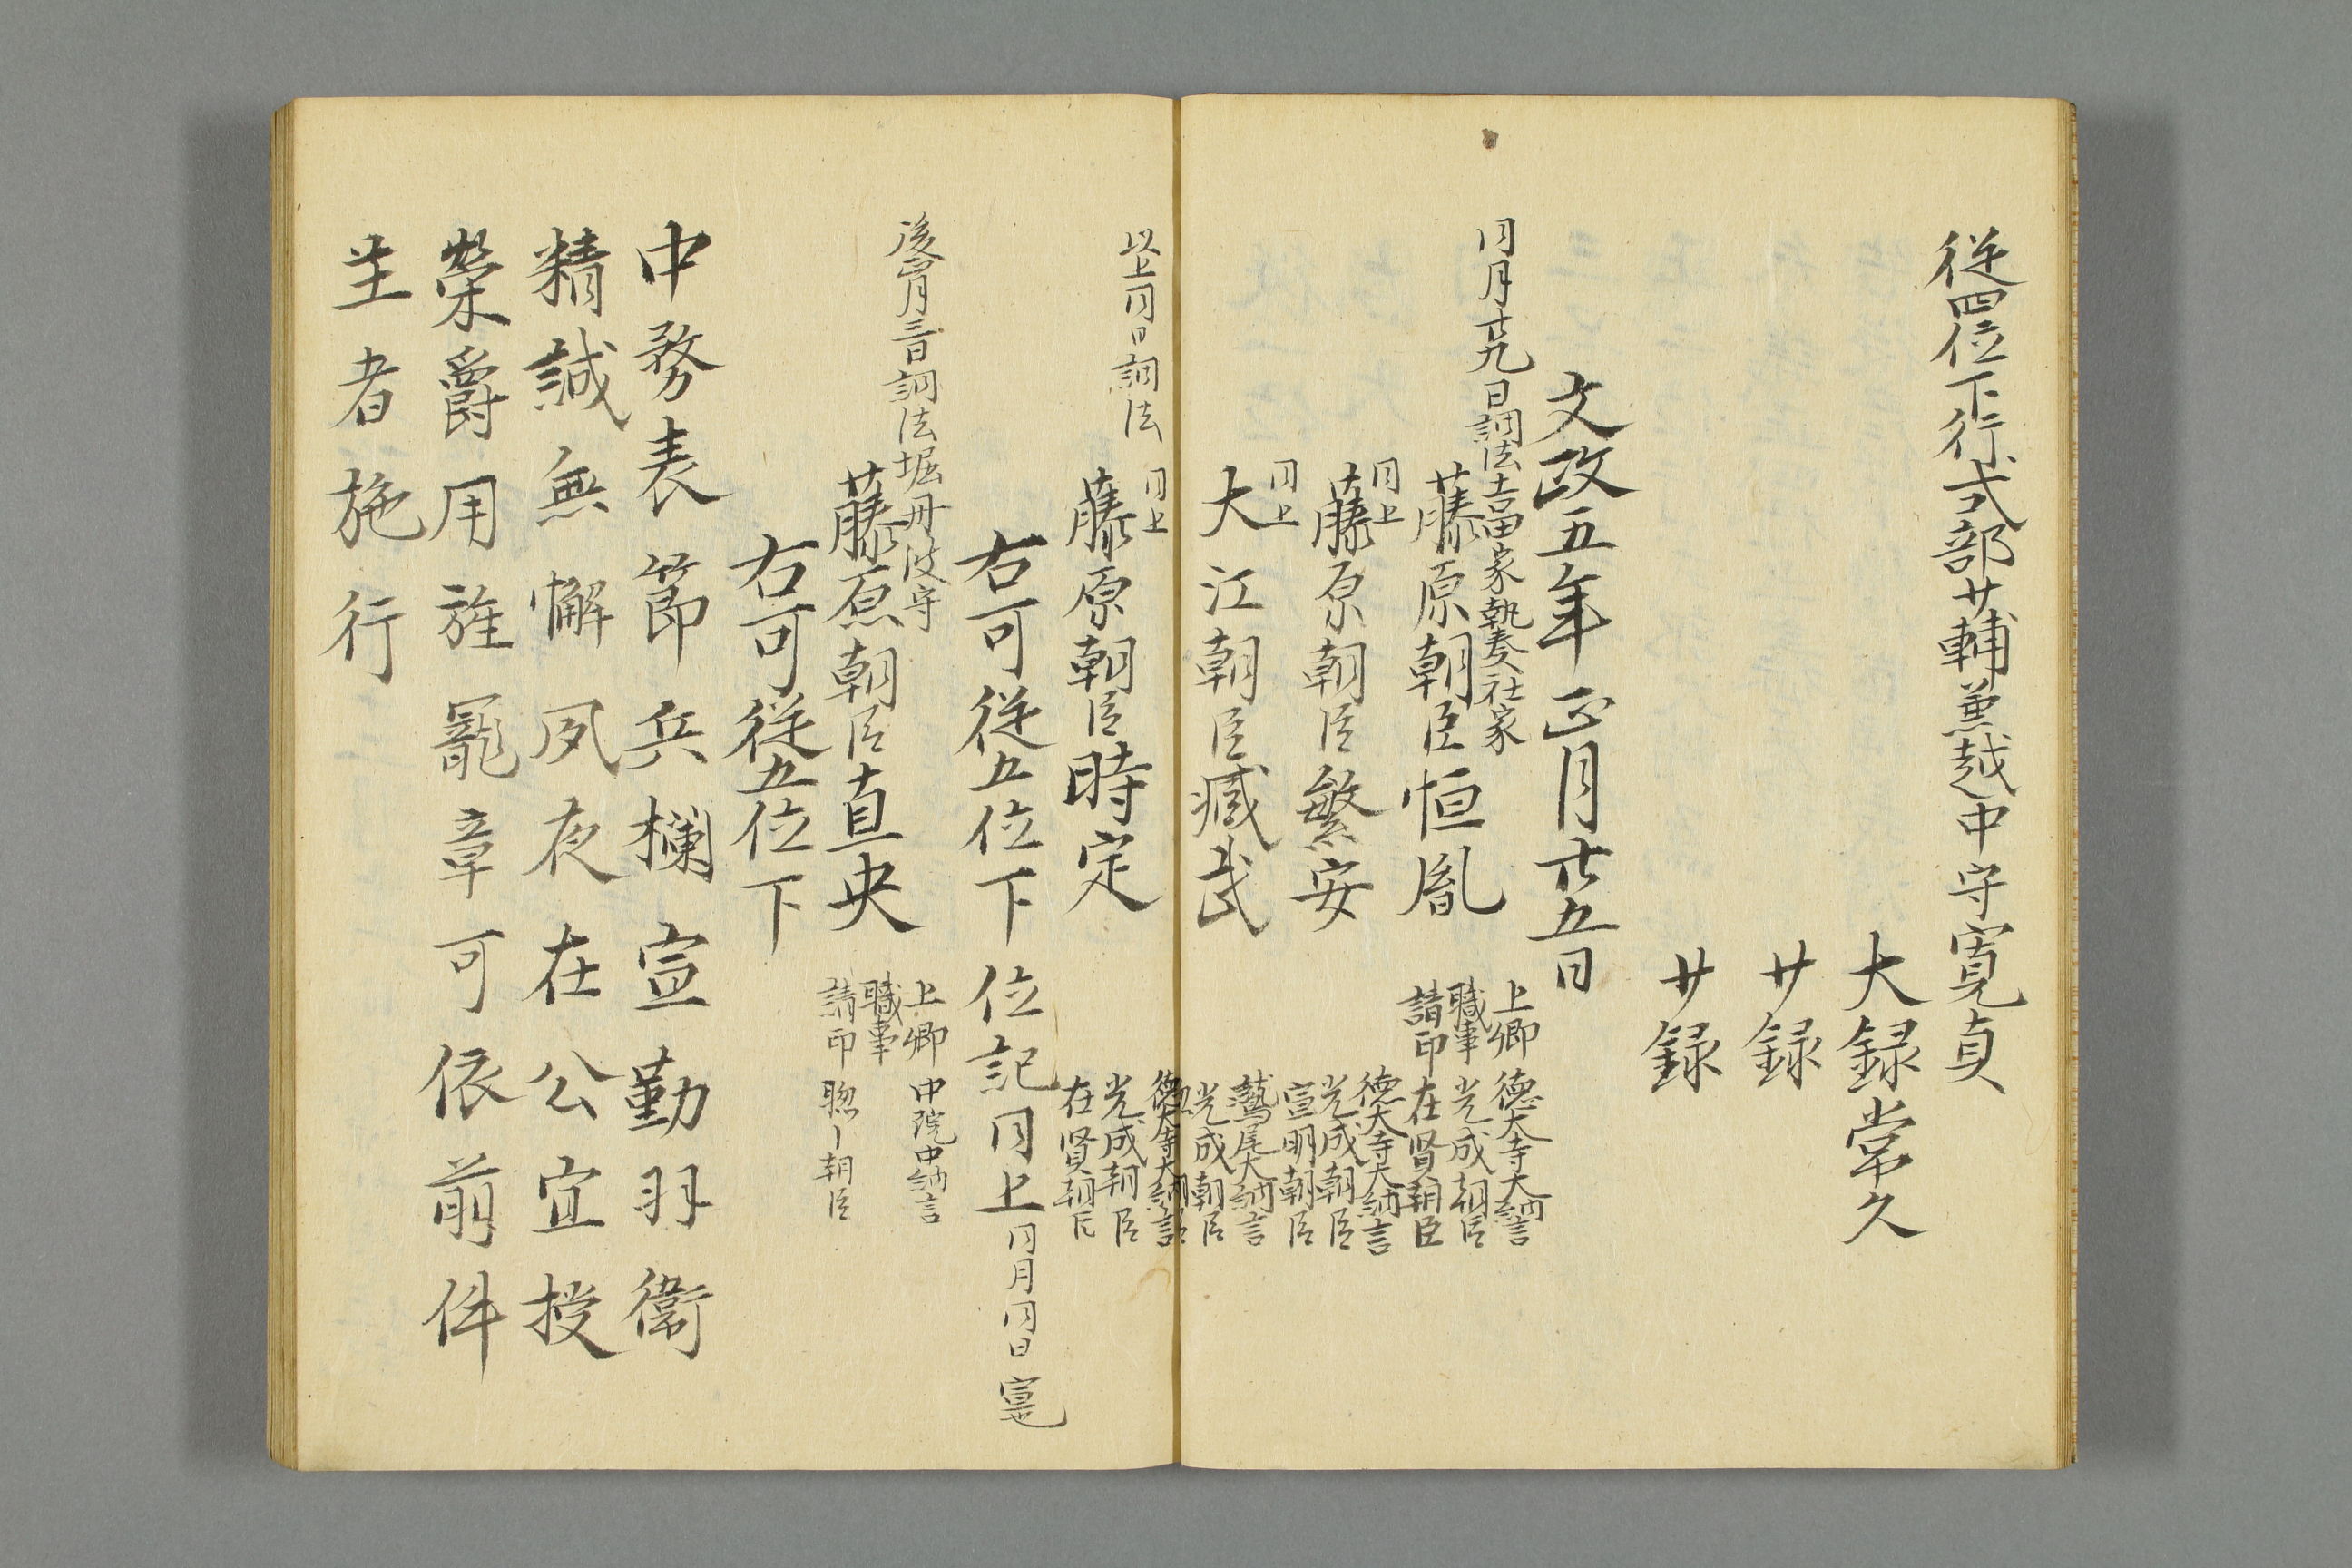 従四位下行式部少輔兼越中守寛貞
大録常久
少録
少録
文政五年正月廿五日
同月廿九日詞法吉田家執奏社家
藤原朝臣恒胤
上卿 徳大寺大納言
職事 光成朝臣
請印 在賢朝臣
同上
藤原朝臣繁安
徳大寺大納言
光成朝臣
宣明朝臣
同上
大江朝臣臧武
鷲尾大納言
光成朝臣
以上同日詞法
同上
藤原朝臣時定
徳大寺大納言
光成朝臣
在賢朝臣
右可従五位下 位記同上 同月同日
後正月三日詞法堀丹波守
藤原朝臣直央
上卿 中院中納言
職事
請印 聡〻朝臣
右可従五位下
中務表節兵欄宣勤羽衛
精誠無懈夙夜在公宜授
榮爵用旌寵章可依前件
主者施行